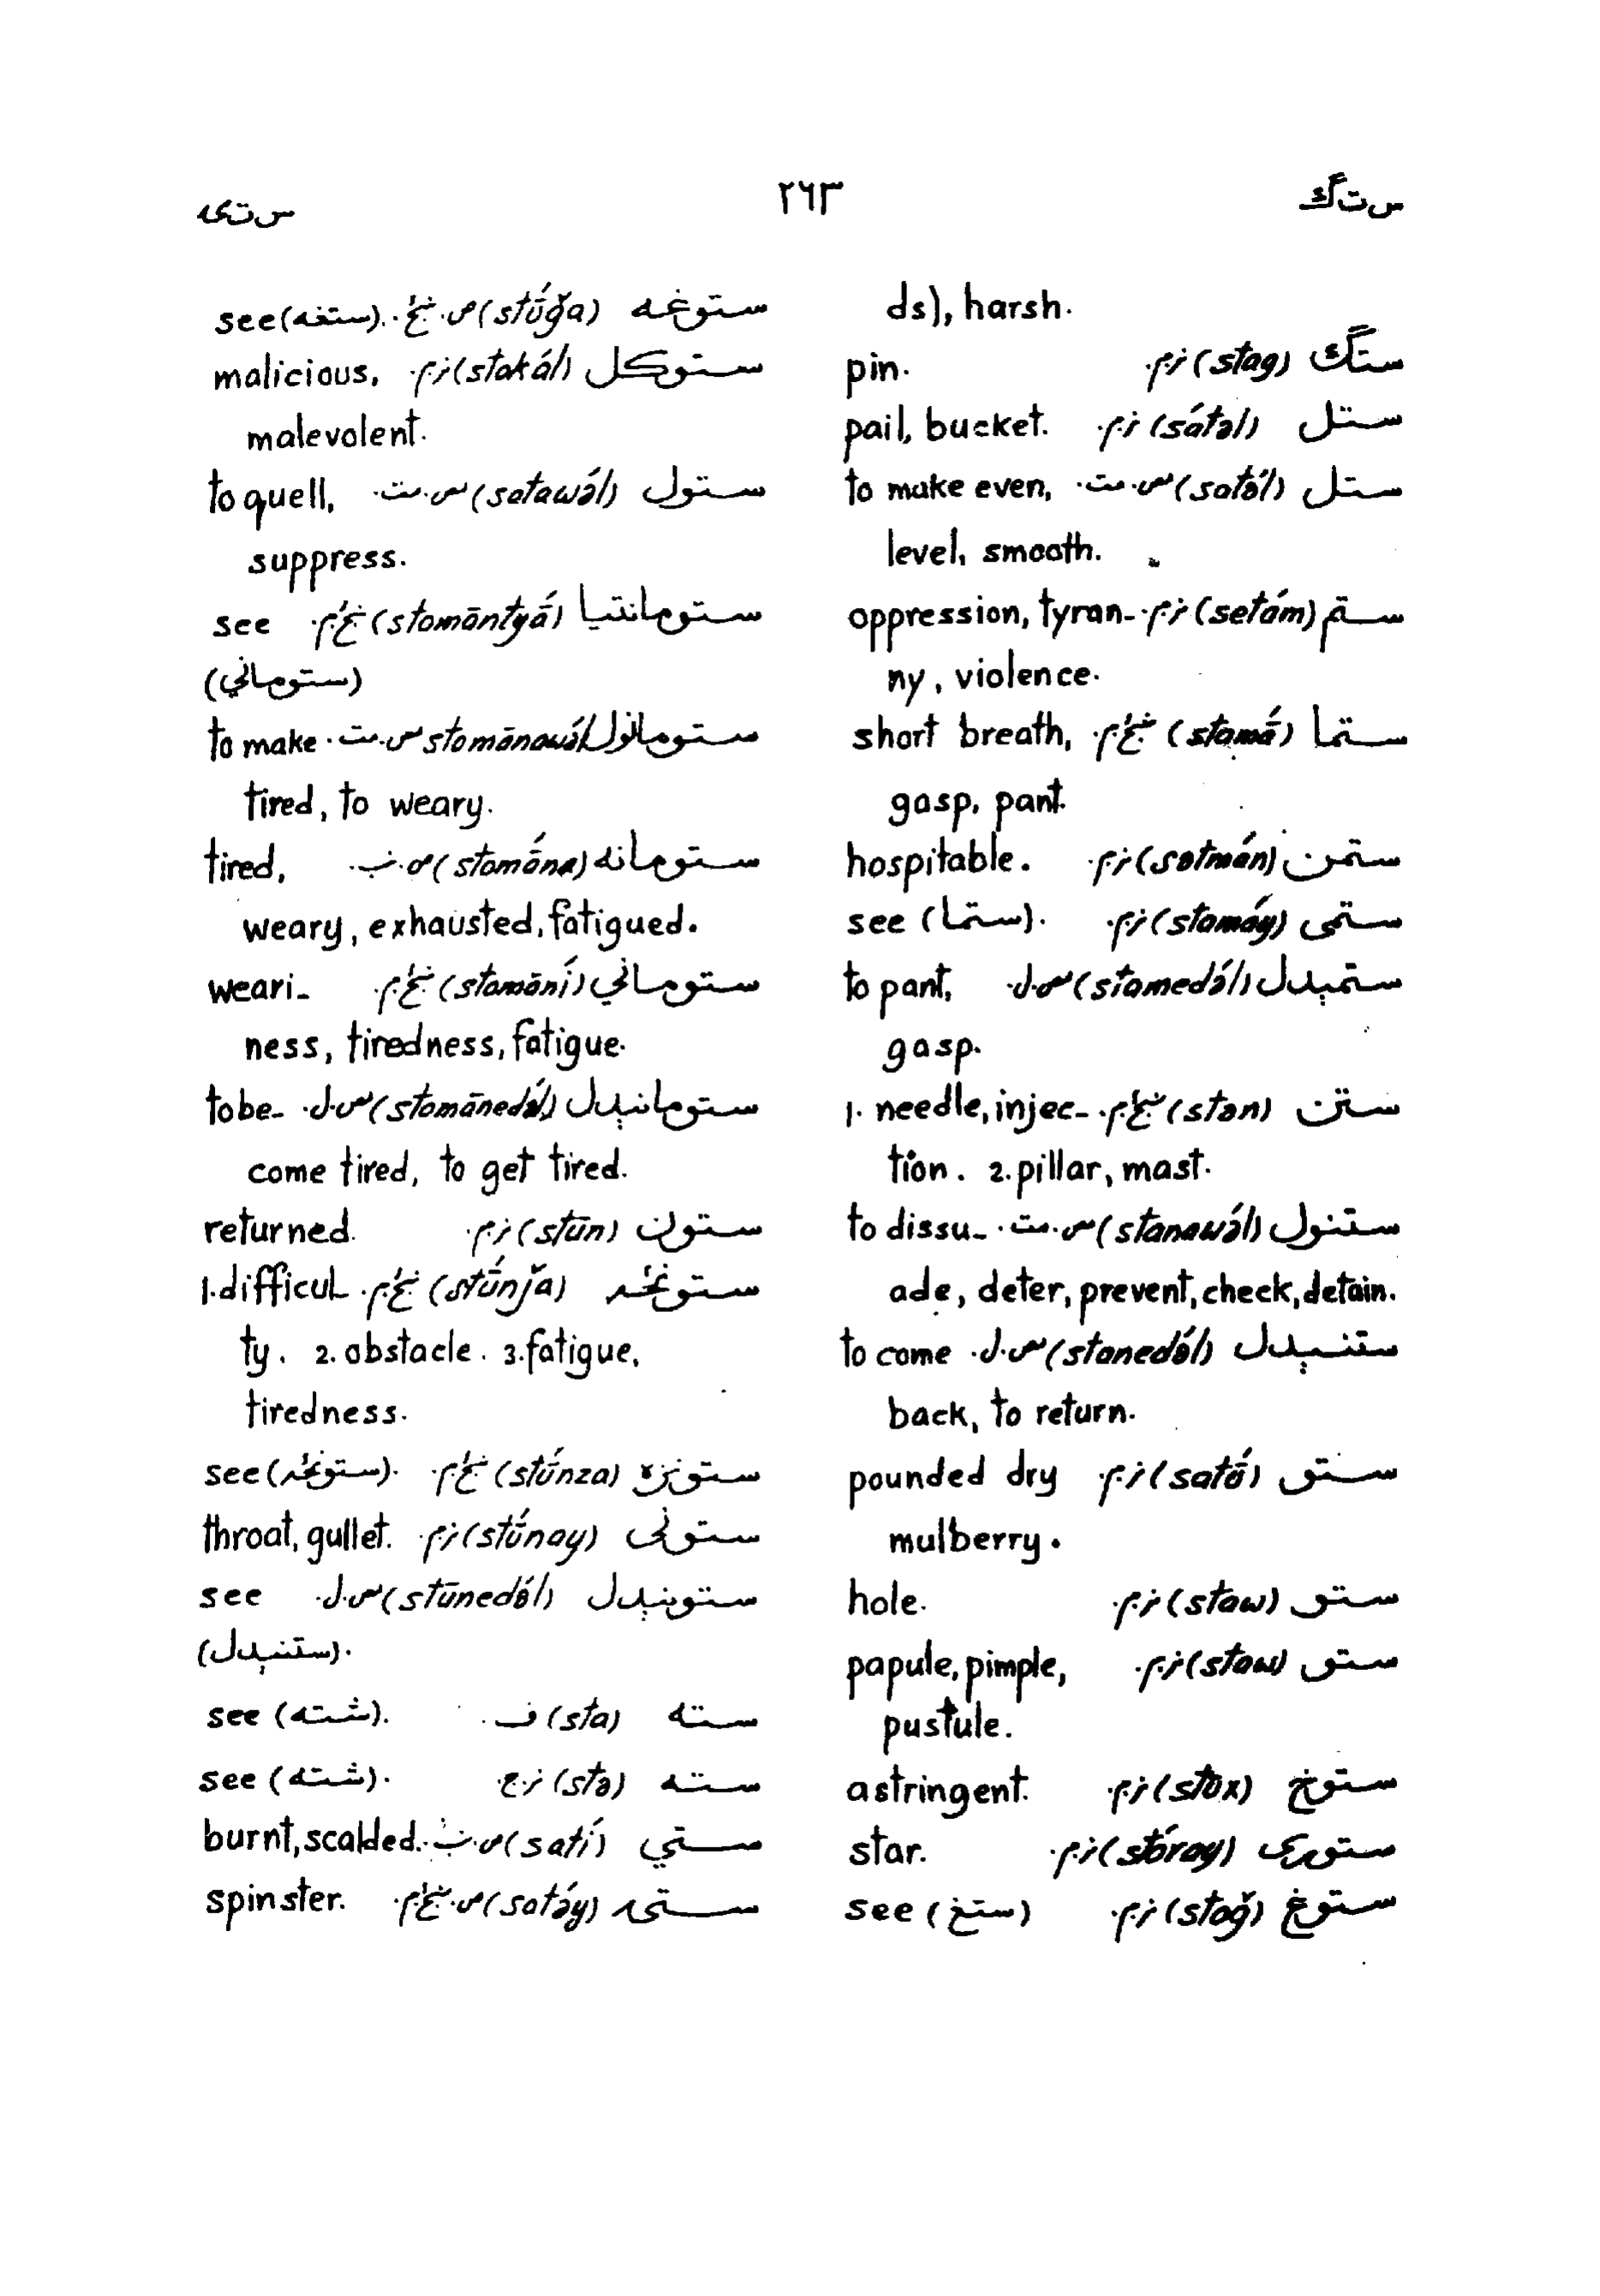 س ت گ
۲۶۳
س ت ی
ds), harsh.
ستگ (stag) ن.م. pin.
ستل (sátəl) ن.م. pail, bucket.
ستل (satə́l) س.مت. to make even,
level, smooth.
ستم (setám) ن.م. oppression, tyran-
ny, violence.
ستما (stamā́) ښځ.م. short breath,
gasp, pant.
ستمن (satmán) ن.م. hospitable.
ستمی (stamáy) ن.م. see (ستما).
ستمېدل (stamedə́l) س.ل. to pant,
gasp.
ستن (stən) ښځ.م. 1. needle, injec-
tion. 2. pillar, mast.
ستنول (stanawə́l) س.مت. to dissu-
ade, deter, prevent, check, detain.
ستنېدل (stanedə́l) س.ل. to come
back, to return.
ستو (sató) ن.م. pounded dry
mulberry.
ستو (staw) ن.م. hole.
ستو (staw) ن.م. papule, pimple,
pustule.
ستوخ (stox) ن.م. astringent.
ستوری (stóray) ن.م. star.
ستوغ (stoǧ) ن.م. see (ستغ)
ستوغه (stū́ǧa) ص.ښځ. see (ستغه).
ستوکل (stokál) ن.م. malicious,
malevolent.
ستول (satawə́l) س.مت. to quell,
suppress.
ستومانتیا (stomāntyā́) ښځ.م. see
(ستوماني)
ستومانول stomānawə́l س.مت. to make
tired, to weary.
ستومانه (stomā́na) ص.ب. tired,
weary, exhausted, fatigued.
ستوماني (stomāní) ښځ.م. weari-
ness, tiredness, fatigue.
ستومانېدل (stomānedə́l) س.ل. to be-
come tired, to get tired.
ستون (stūn) ن.م. returned.
ستونځه (stū́nǰa) ښځ.م. 1. difficul-
ty. 2. obstacle. 3. fatigue,
tiredness.
ستونزه (stū́nza) ښځ.م. see (ستونځه).
ستونی (stū́nay) ن.م. throat, gullet.
ستونېدل (stūnedə́l) س.ل. see
(ستنېدل).
سته (sta) ف. see (شته).
سته (stə) ن.ج see (شته).
ستي (satí) ص.ښ. burnt, scalded.
ستۍ (satə́y) ص.ښځ.م. spinster.